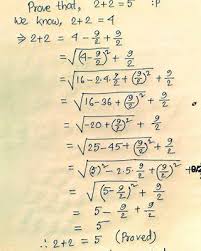 Prove that, 2+2 = 5 :P
We know, 2+2 = 4
⇒ 2+2 = 4 - 9/2 + 9/2
= √(4-9/2)² + 9/2
= √16-2.4.9/2+(9/2)² + 9/2
= √16-36+(9/2)² + 9/2
= √-20+(9/2)² + 9/2
= √25-45+(9/2)² + 9/2
= √(5)²-2.5.9/2+(9/2)² + 9/2
= √(5-9/2)² + 9/2
= 5 - 9/2 + 9/2
= 5
∴ 2+2 = 5 (Proved)